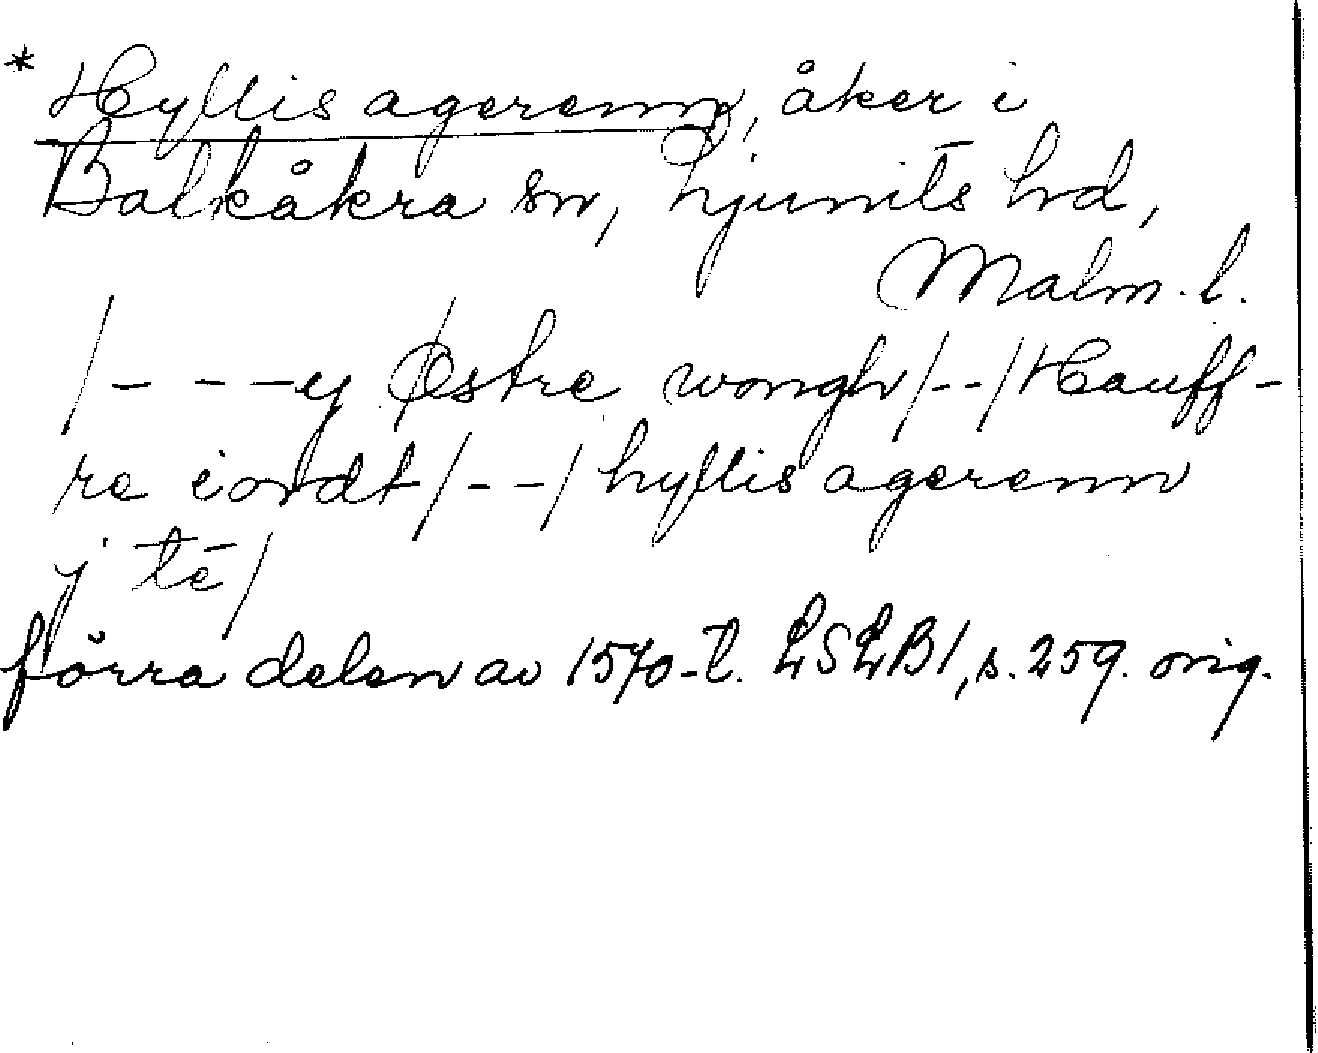 * Hyllis agerenn, åker i
Balkåkra sn, Ljunits hd,
Malm. l.
/- - - y Østre wongh/--/Hauff-
re iordt/--/hyllis agerenn
j té/
förra delen av 1570-t. LSLB1, s. 259. orig.